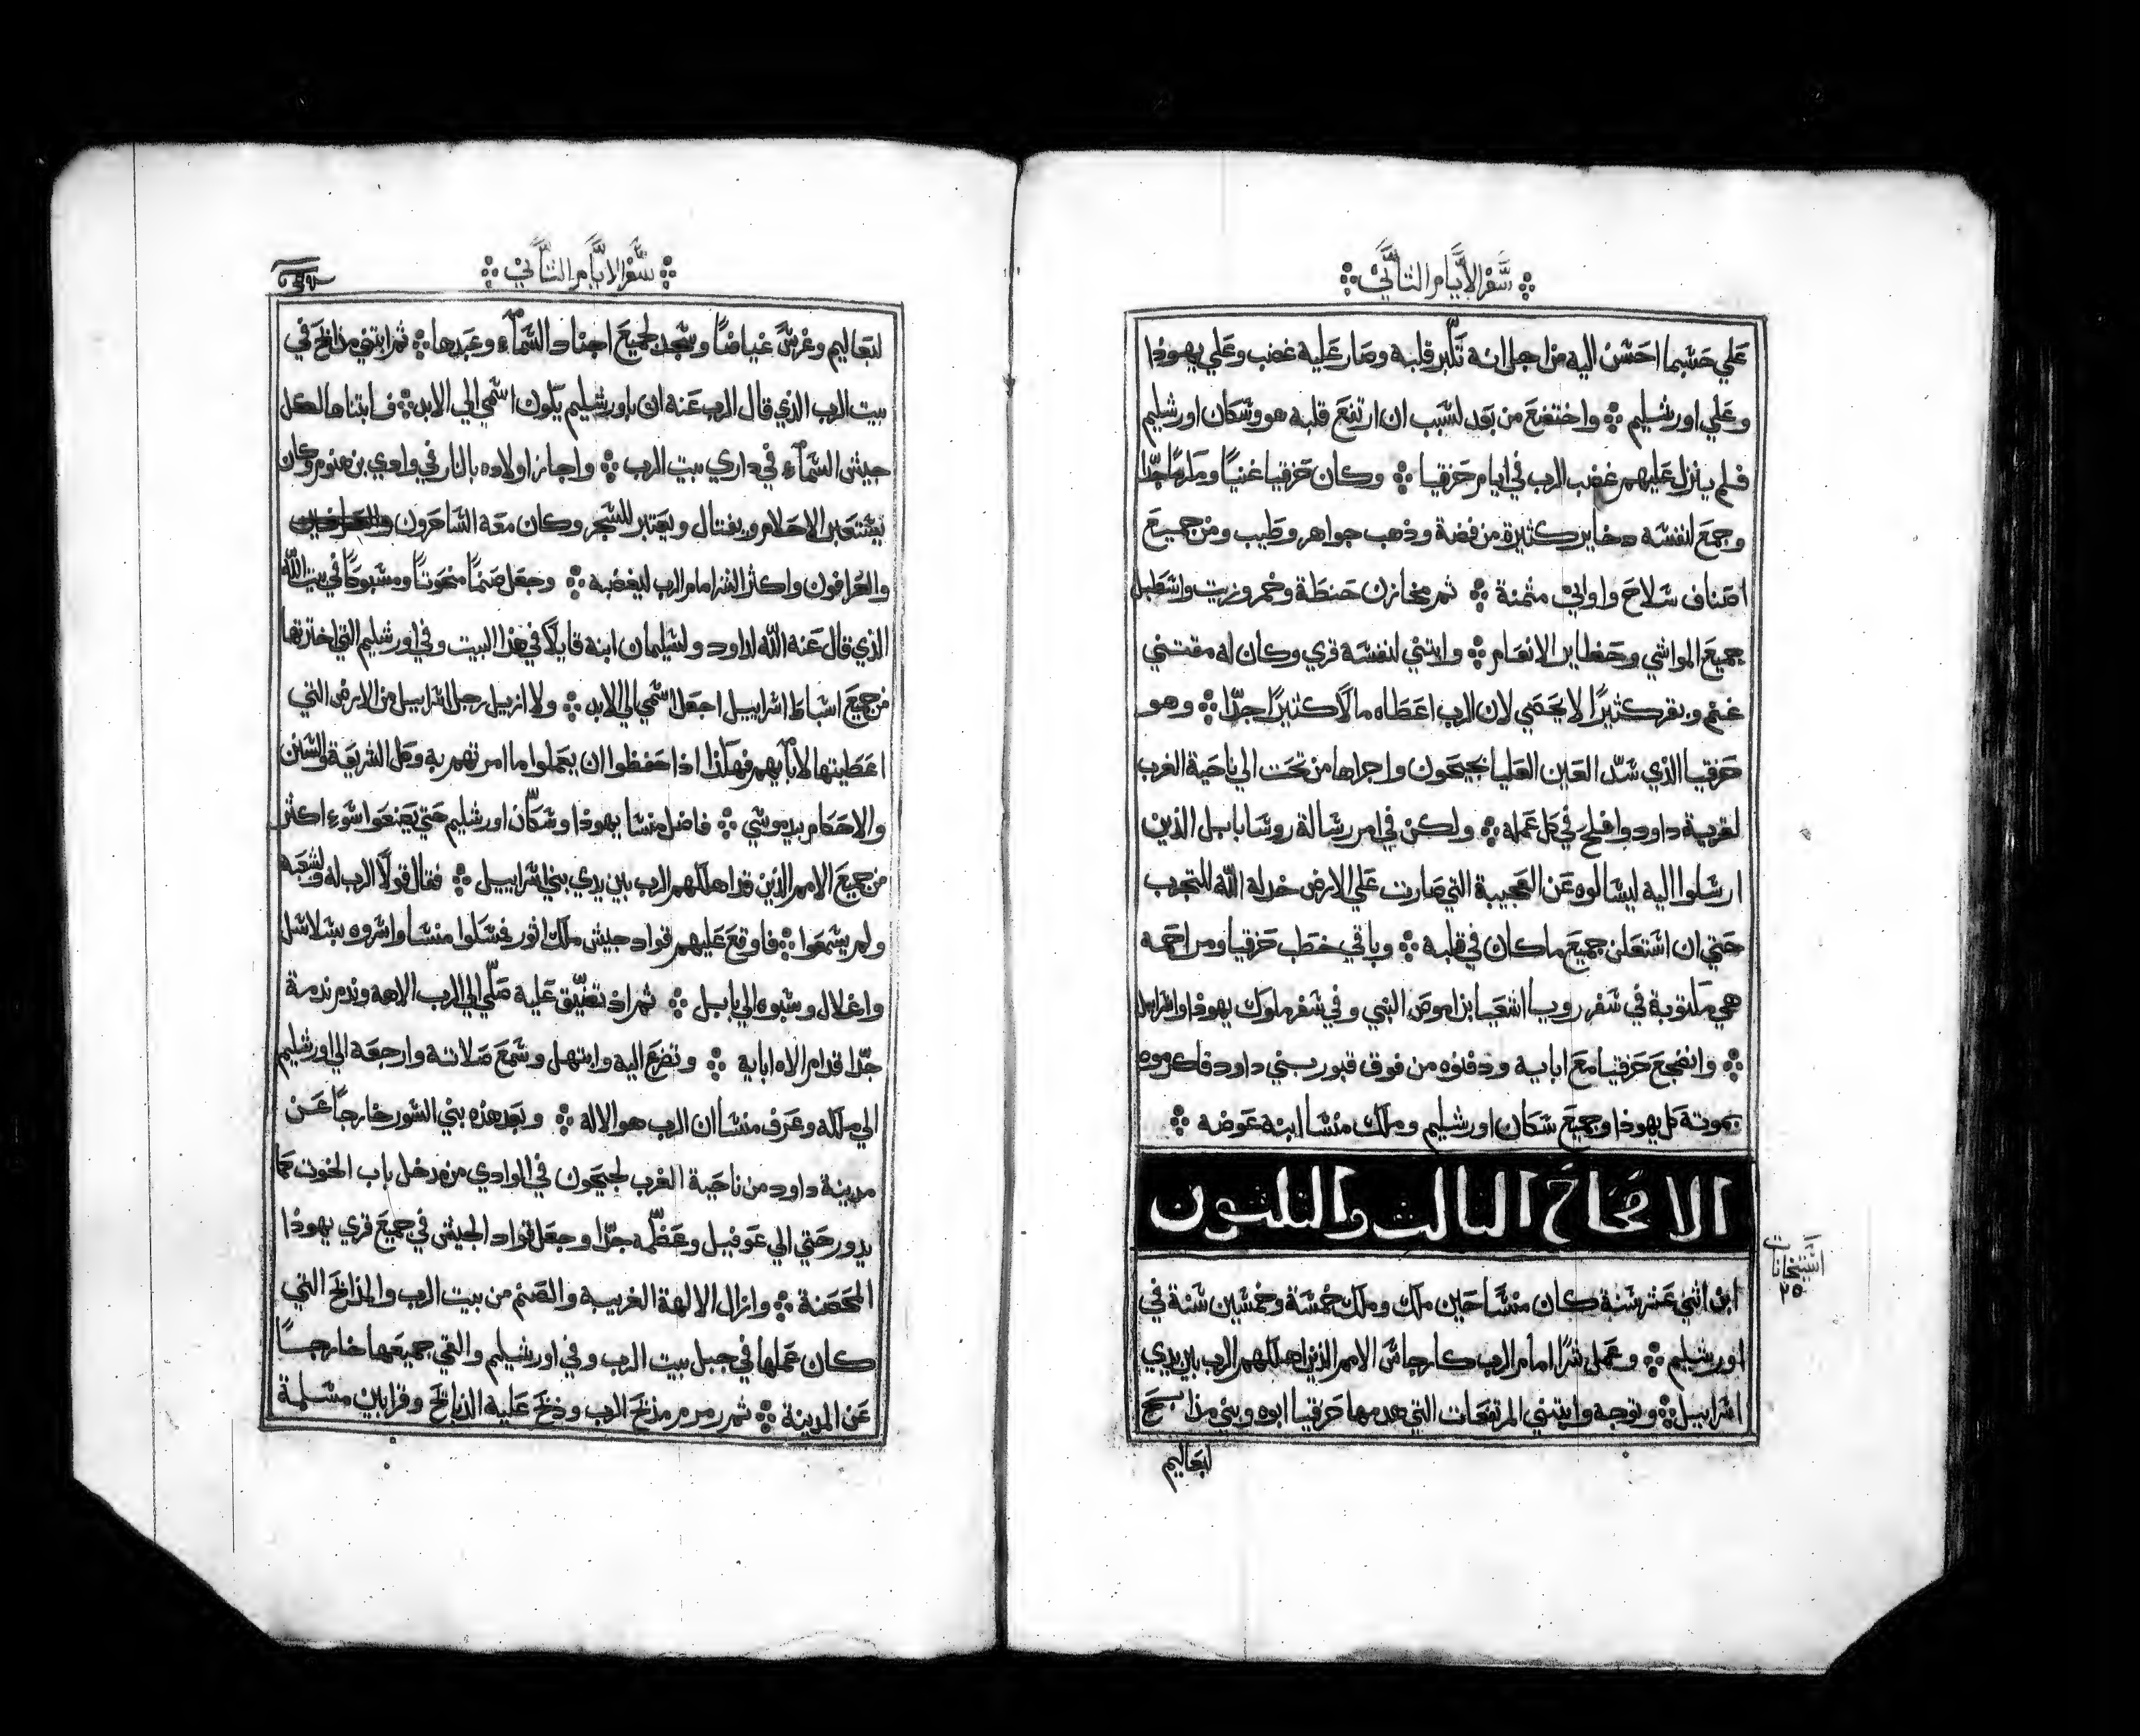 سفر الايام التاني
علي حسبما احسن اليه من اجل انه تكبر قلبه وصار عليه غضب وعلي يهوذا
وعلي اورشليم ܀ واختضع من بعد لسبب ان ارتفع قلبه هو وسكان اورشليم
فلم ينزل عليهم غضب الرب في ايام حزقيا ܀ وكان حزقيا غنيًا ومكرمًا جدًا
وجمع لنفسه دخاير كثيرة من فضة وذهب جواهر وطيب ومن جميع
اصناف سلاح واواني مثمنة ܀ ثم مخازن حنطة وخمر وزيت واسطبل
جميع المواشي وحظاير الانعام ܀ وابتني لنفسه قري وكان له مقتني
غنم وبقر كثيرًا لا يحصي لان الرب اعطاه مالًا كثيرًا جدًا ܀ وهو
حزقيا الذي سد العين العليا بجيحون واجراها من تحت الي ناحية الغرب
لقرية داود وافلح في كل عمله ܀ ولكن في امر رسالة روسا بابل الذين
ارسلوا اليه ليسالوه عن العجيبة التي صارت علي الارض خدله الله للتجرب
حتي ان استعلن جميع ما كان في قلبه ܀ وباقي خطب حزقيا ومراحمه
هي مكتوبة في سفر رويا اشعيا بن اموص النبي وفي سفر ملوك يهوذا واسراييل
܀ وانضجع حزقيا مع ابايه ودفنوه من فوق قبور بني داود فاكرموه
بموته كل يهوذا وجميع سكان اورشليم وملك منسا ابنه عوضه ܀
الاصحاح التالت والتلتون
ابن اثني عشر سنة كان منسا حين ملك وملك خمسة وخمسين سنة في
اورشليم ܀ وعمل شرًا امام الرب كارجاس الامم الذين اهلكهم الرب بين يدي
اسراييل ܀ وتوجه وابتني المرتفعات التي هدمها حزقيا ابوه وبني مذابح
لبعاليم
استنخات
٢٥
سفر الايام التاني
لبعاليم وغرس غياضًا وسجد لجميع اجناد السماء وعبدها ܀ ثم ابتني مذابح في
بيت الرب الذي قال الرب عنه ان باورشليم يكون اسمي الي الابد ܀ فابتناها لكل
جيش السماء في داري بيت الرب ܀ واجاز اولاده بالنار في وادي بن هنوم وكان
يستعبر الاحلام ويفتال ويعتبر للسحر وكان معه الساحرون
والعرافون واكثر الشر امام الرب ليغضبه ܀ وجعل صنمًا منحوتًا ومسبوكًا في بيت الله
الذي قال عنه الله لداود ولسليمان ابنه قايلًا في هذا البيت وفي اورشليم التي اخترتها
من جميع اسباط اسراييل اجعل اسمي الي الابد ܀ ولا ازيل رجل اسراييل من الارض التي
اعطيتها لابايهم فهكذا اذا حفظوا ان يعملوا ما امرتهم به وكل الشريعة والسنن
والاحكام بيد موسي ܀ فاضل منسا يهوذا وسكان اورشليم حتي يصنعوا سوء اكثر
من جميع الامم الذين قد اهلكهم الرب بين يدي بني اسراييل ܀ فقال قولًا الرب له ولشعبه
ولم يسمعوا ܀ فاوقع عليهم قواد جيش ملك اثور فسلوا منسا واسروه بسلاسل
واغلال وسبوه الي بابل ܀ ثم اذ تضيق عليه صلي الي الرب الاهه وندم ندمة
جدًا قدام الاه ابايه ܀ وتضرع اليه وابتهل وسمع صلاته وارجعه الي اورشليم
الي ملكه وعرف منسا ان الرب هو الاله ܀ وبعد هذه بني السور خارجًا عن
مدينة داود من ناحية الغرب لجيحون في الوادي من مدخل باب الحوت كما
يدور حتي الي عوفيل وعظمه جدًا وجعل قواد الجيش في جميع قري يهوذا
المحصنة ܀ وازال الالهة الغريبة والصنم من بيت الرب والمذابح التي
كان عملها في جبل بيت الرب وفي اورشليم والقي جميعها خارجًا
عن المدينة ܀ ثم رمم مذبح الرب وذبح عليه الذبايح وقرابين مسلمة